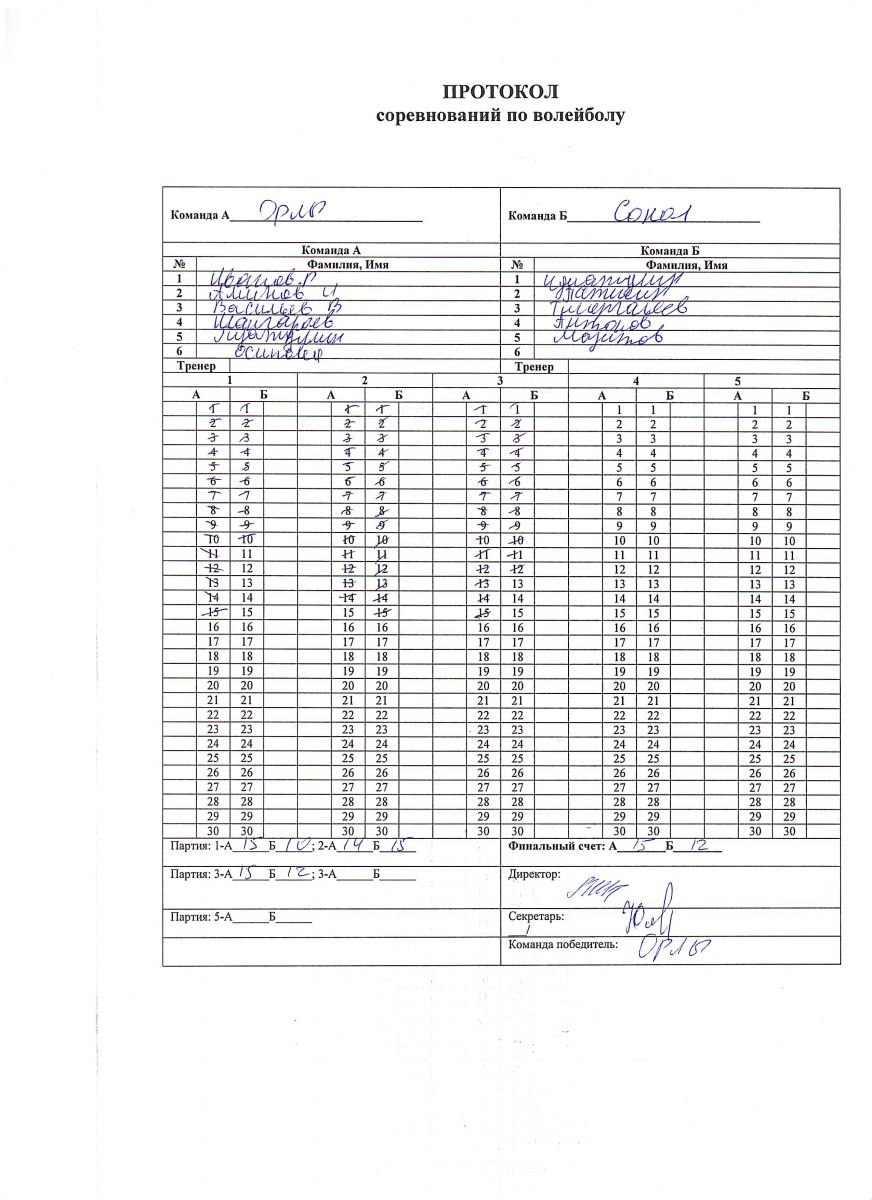 ПРОТОКОЛ
соревнований по волейболу
Команда А Орлы
Команда Б Сокол
Команда А Команда Б
№ Фамилия, Имя № Фамилия, Имя
1 Иванов Р 1
2 Аминов И 2
3 Васильев В 3
4 4 Антонов
5 5 Мазитов
6 6
Тренер Тренер
1 2 3 4 5
А Б А Б А Б А Б А Б
1 1 1 1 1 1 1 1 1 1
2 2 2 2 2 2 2 2 2 2
3 3 3 3 3 3 3 3 3 3
4 4 4 4 4 4 4 4 4 4
5 5 5 5 5 5 5 5 5 5
6 6 6 6 6 6 6 6 6 6
7 7 7 7 7 7 7 7 7 7
8 8 8 8 8 8 8 8 8 8
9 9 9 9 9 9 9 9 9 9
10 10 10 10 10 10 10 10 10 10
11 11 11 11 11 11 11 11 11 11
12 12 12 12 12 12 12 12 12 12
13 13 13 13 13 13 13 13 13 13
14 14 14 14 14 14 14 14 14 14
15 15 15 15 15 15 15 15 15 15
16 16 16 16 16 16 16 16 16 16
17 17 17 17 17 17 17 17 17 17
18 18 18 18 18 18 18 18 18 18
19 19 19 19 19 19 19 19 19 19
20 20 20 20 20 20 20 20 20 20
21 21 21 21 21 21 21 21 21 21
22 22 22 22 22 22 22 22 22 22
23 23 23 23 23 23 23 23 23 23
24 24 24 24 24 24 24 24 24 24
25 25 25 25 25 25 25 25 25 25
26 26 26 26 26 26 26 26 26 26
27 27 27 27 27 27 27 27 27 27
28 28 28 28 28 28 28 28 28 28
29 29 29 29 29 29 29 29 29 29
30 30 30 30 30 30 30 30 30 30
Партия: 1-А 15 Б 10; 2-А 14 Б 15
Финальный счет: А 15 Б 12
Партия: 3-А 15 Б 12; 3-А______Б______
Директор:
Партия: 5-А______Б______
Секретарь:
___/
Команда победитель: Орлы